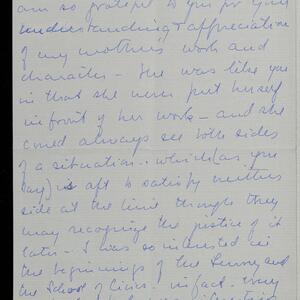 am so grateful to you for your
understanding & appreciation
of my mothers' work and
character - She was like you
in that she never put herself
in front of her work - and she
could always see both sides
of a situation.. which (as you
say) is apt to satisfy neither
side at the time though they
may recognize the justice of it
later - I was so interested in
the beginnings of the Survey and
the School of Civics - in fact - every